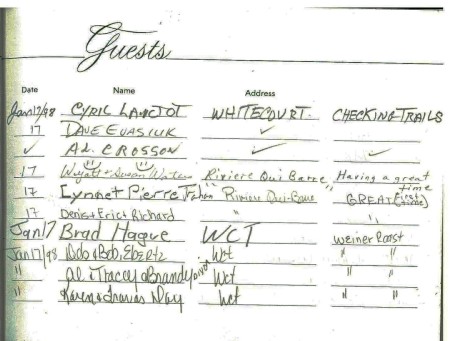 Guests
Date Name Address
Jan 17/98 CYRIL LANCTOT WHITECOURT. CHECKING TRAILS
17 DAVE EVASIUK ✓
✓ AL. CROSSON ✓ ✓
17 Wyatt + Susan Waters Riviere Qui Barre Having a great time
17 Lynne + Pierre Riviere Qui-Barre GREAT (First time)
17 Denis + Eric + Richard " "
Jan 17 Brad Hague WCT Weiner Roast
Jan 17/98 Dodo & Bob Ebertz Wct " "
" Al & Tracey & Brandy Wct " "
" Karen & Travis Day Wct " "